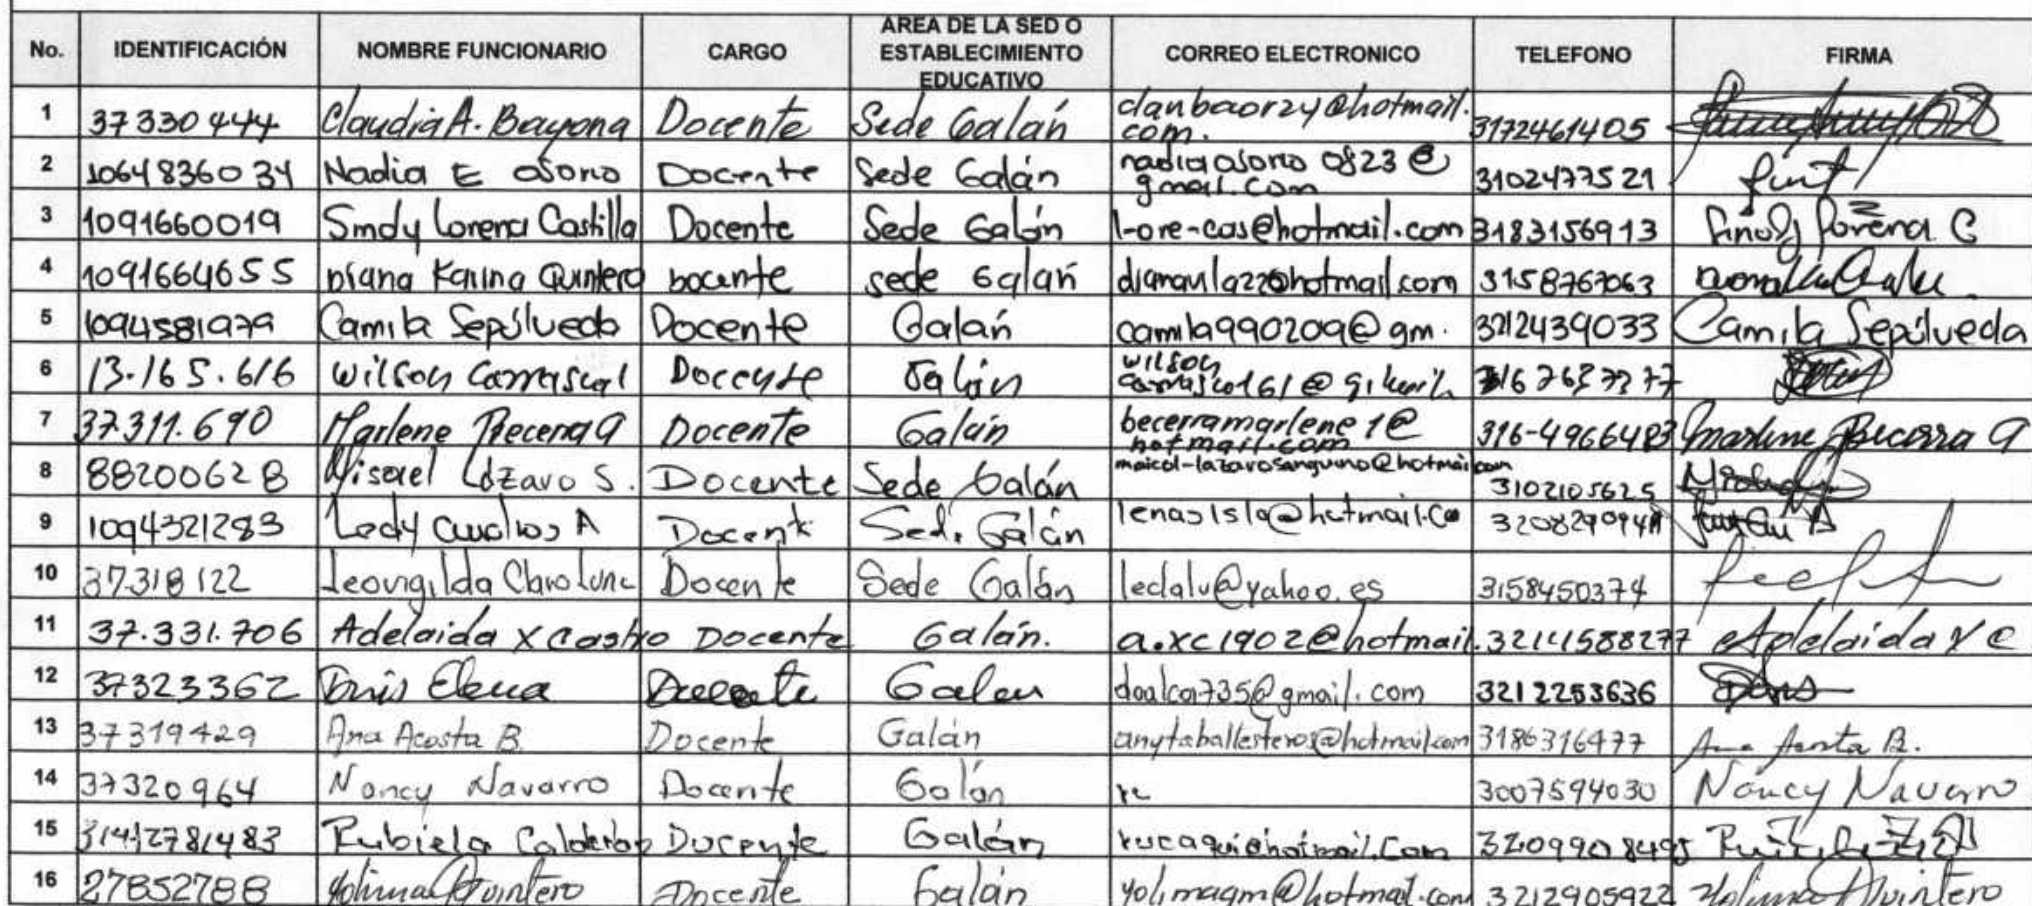 No. IDENTIFICACIÓN NOMBRE FUNCIONARIO CARGO AREA DE LA SED O ESTABLECIMIENTO EDUCATIVO CORREO ELECTRONICO TELEFONO FIRMA
1 37330444 Claudia A. Bayona Docente Sede Galán clanbaorzy@hotmail.com. 3172461405
2 1064836034 Nadia E Osorio Docente Sede Galán nadiaosorio0823@gmail.com 3102477521
3 1091660019 Sindy Lorena Castilla Docente Sede Galán l-ore-cas@hotmail.com 3183156913 Sindy Lorena C
4 1091664655 Diana Karina Quintero Docente sede Galán 3158767063
5 1094581979 Camila Sepúlveda Docente Galán camila990209@gm. 3212439033 Camila Sepúlveda
6 13.165.616 Wilson Carrascal Docente Galán
7 37.311.690 Marlene Becerra Q Docente Galán becerramarlene1@hotmail.com 316-4966483 Marlene Becerra Q
8 88200628 Misael Lázaro S. Docente Sede Galán maicol-lazarosanguino@hotmail.com 3102105625
9 1094321283 Docente Sede Galán
10 37318122 Leovigilda Claro Luna Docente Sede Galán leclalu@yahoo.es 3158450374
11 37.331.706 Adelaida X Castro Docente Galán. a.xc1902@hotmail. Adelaida X C
12 37323362 Elena Docente Galan doalca735@gmail.com 3212253636
13 37319429 Ana Acosta B. Docente Galán anytaballesteros@hotmail.com 3186316477 Ana Acosta B.
14 37320964 Nancy Navarro Docente Galán 3007594030 Nancy Navarro
15 Rubiela Calderon Docente Galán rucaqui@hotmail.com
16 27852788 Yolima Quintero Docente Galán yolimaqm@hotmail.com 3212905922 Yolima Quintero